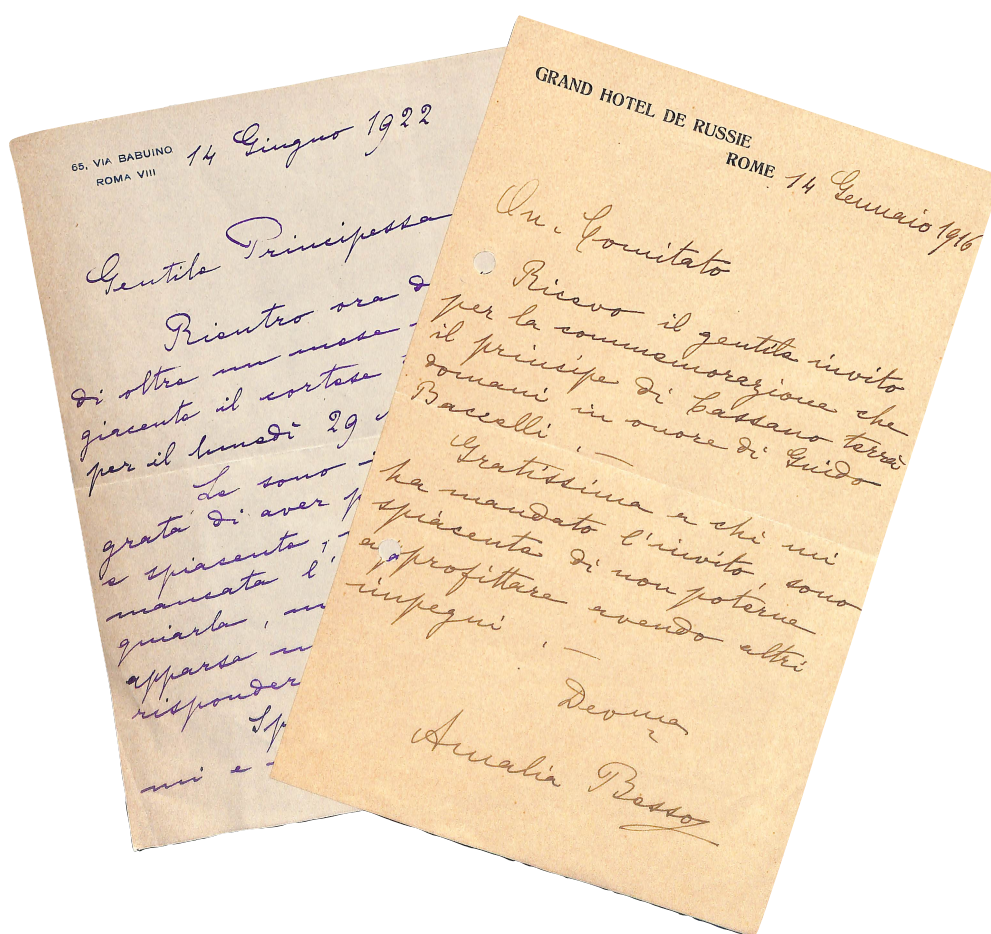 65, VIA BABUINO
ROMA VIII
14 Giugno 1922
Gentile Principessa
Rientro ora d
di oltre un mese
giacente il cortese
per il lunedì 29
Le sono
grata di aver p
e spiacente,
mancata l'
quiarla, m
apparsa
risponder
Sp
mi e
GRAND HOTEL DE RUSSIE
ROME
14 Gennaio 1916
On. Comitato
Ricevo il gentile invito
per la commemorazione che
il principe di Cassano terrà
domani in onore di Guido
Baccelli. —
Gratissima a chi mi
ha mandato l'invito, sono
spiacente di non poterne
approfittare avendo altri
impegni. —
Devma
Amalia Besso